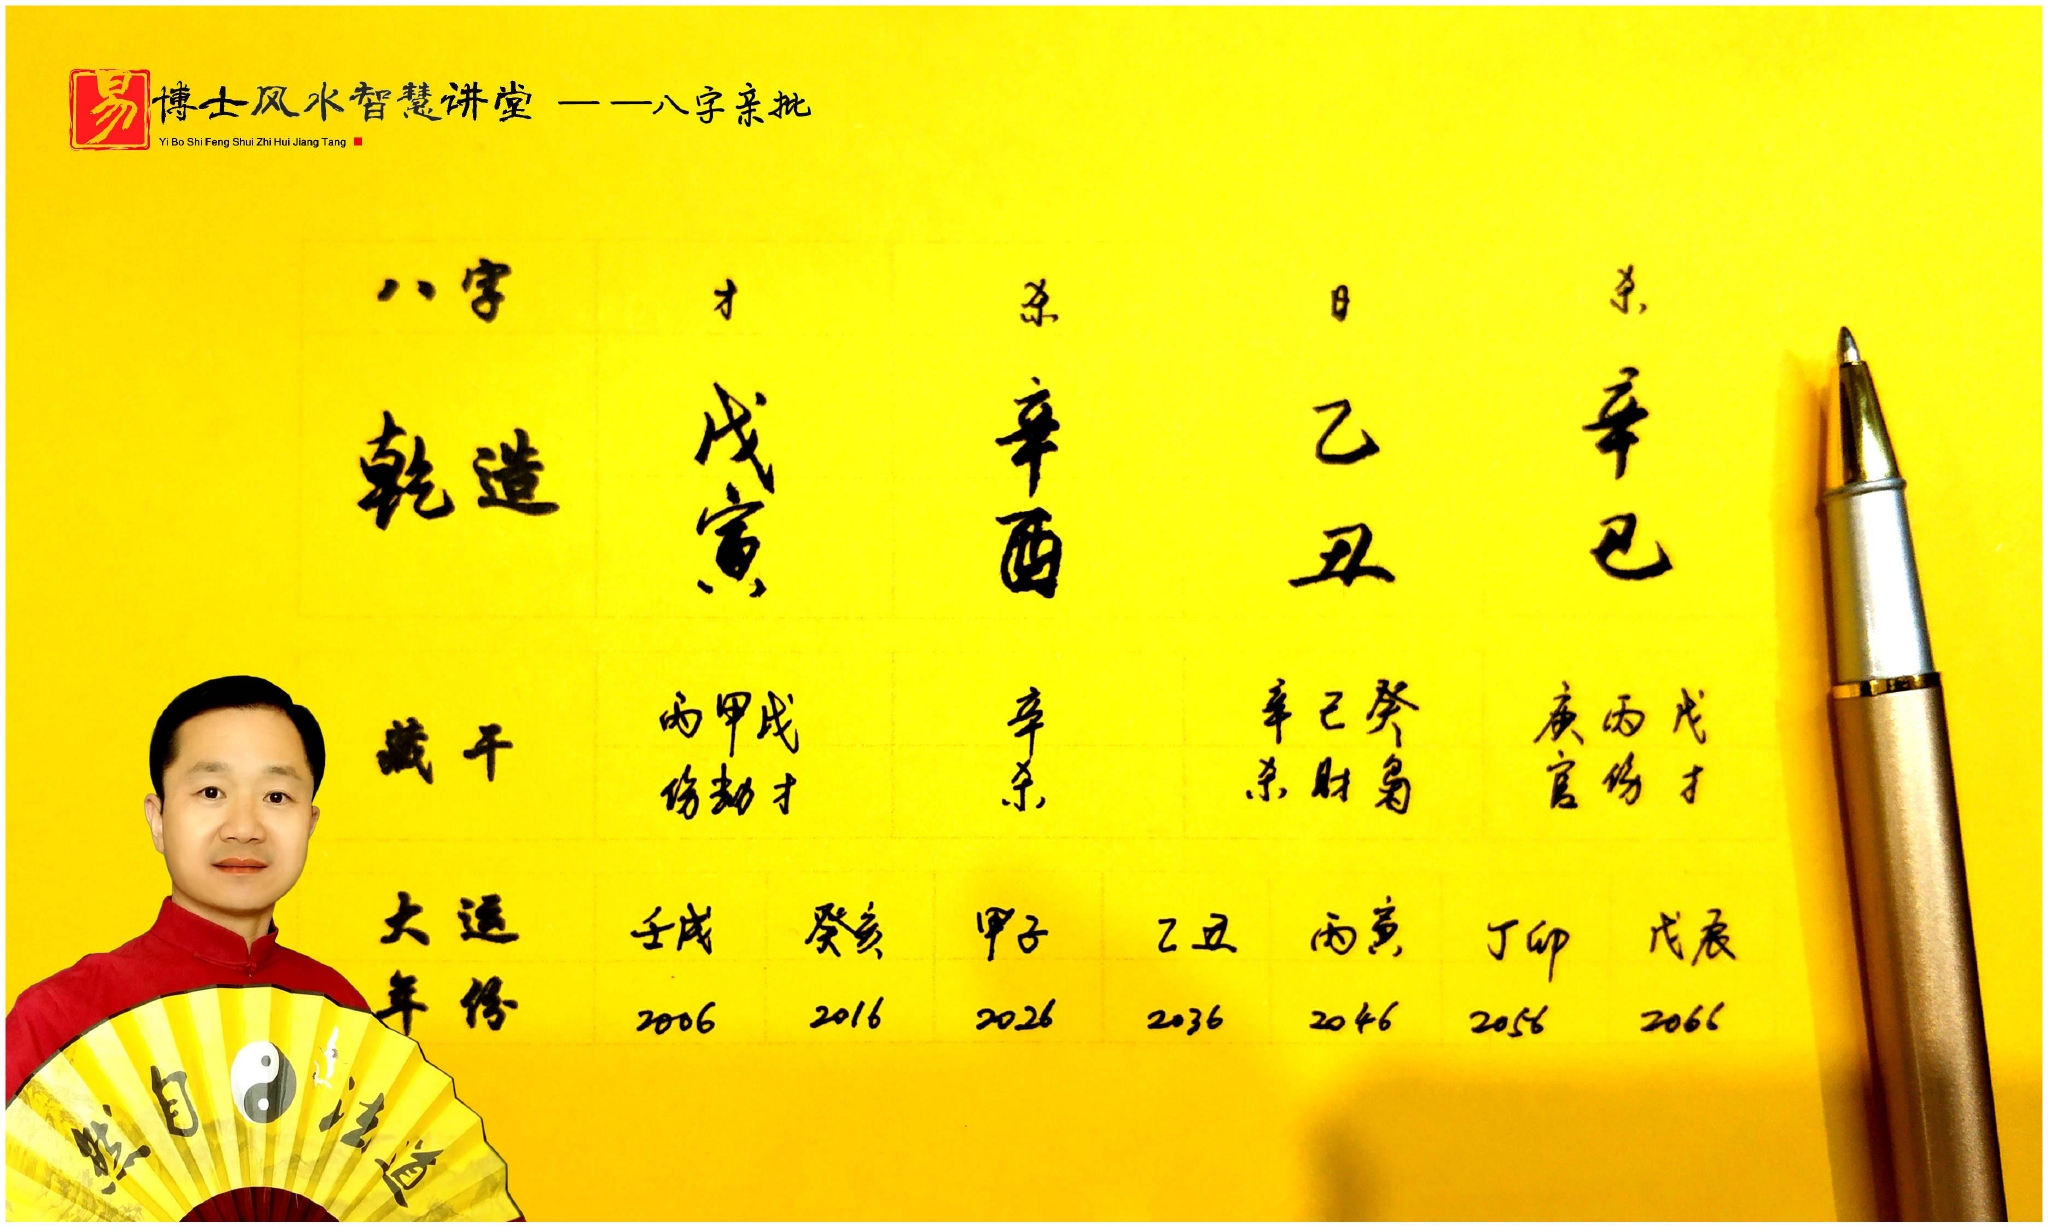 易 博士风水智慧讲堂 ——八字亲批
Yi Bo Shi Feng Shui Zhi Hui Jiang Tang
八字 才 杀 日 杀
乾造 戊 辛 乙 辛
寅 酉 丑 巳
藏干 丙甲戊 辛 辛己癸 庚丙戊
伤劫才 杀 杀财枭 官伤才
大运 壬戌 癸亥 甲子 乙丑 丙寅 丁卯 戊辰
年份 2006 2016 2026 2036 2046 2056 2066
然自法道